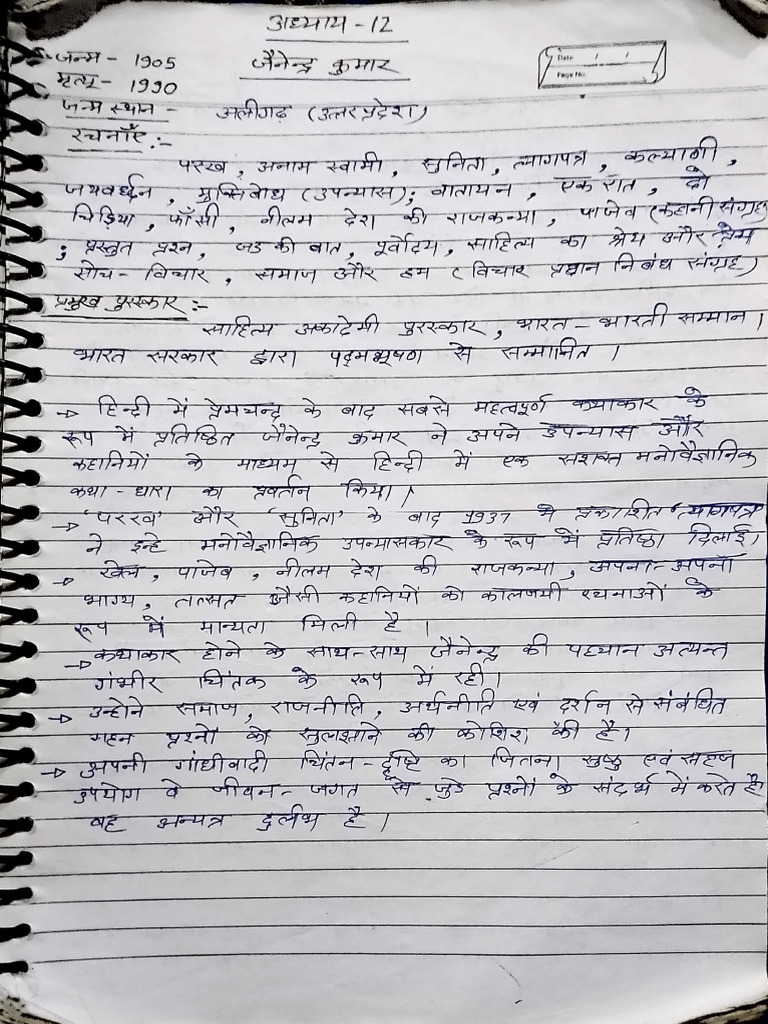 अध्याय - 12
Date / /
Page No.
जन्म - 1905
जैनेन्द्र कुमार
मृत्यू - 1990
जन्म स्थान - अलीगढ़ (उत्तरप्रदेश)
रचनाएँ :-
परख, अनाम स्वामी, सुनिता, त्यागपत्र, कल्याणी,
जयवर्धन, मुक्तिबोध (उपन्यास); वातायन, एक रात, दो
चिड़िया, फाँसी, नीलम देश की राजकन्या, पाजेब (कहानी संग्रह)
; प्रस्तुत प्रश्न, जड की बात, पूर्वोदय, साहित्य का श्रेय और प्रेम
सोच - विचार, समाज और हम (विचार प्रधान निबंध संग्रह)
प्रमुख पुरस्कार :-
साहित्य अकादेमी पुरस्कार, भारत - भारती सम्मान।
भारत सरकार द्वारा पद्मभूषण से सम्मानित।
→ हिन्दी में प्रेमचन्द्र के बाद सबसे महत्वपूर्ण कथाकार के
रूप में प्रतिष्ठित जैनेन्द्र कुमार ने अपने उपन्यास और
कहानियों के माध्यम से हिन्दी में एक सशक्त मनोवैज्ञानिक
कथा - धारा का प्रवर्तन किया।
→ 'परख' और 'सुनिता' के बाद 1937 मे प्रकाशित 'त्यागपत्र'
ने इन्हे मनोवैज्ञानिक उपन्यासकार के रूप में प्रतिष्ठा दिलाई।
→ खेल, पाजेब, नीलम देश की राजकन्या, अपना - अपना
भाग्य, तत्सत जैसी कहानियों को कालजयी रचनाओं के
रूप में मान्यता मिली है।
→ कथाकार होने के साथ - साथ जैनेन्द्र की पहचान अत्यन्त
गंभीर चिंतक के रूप में रही।
→ उन्होने समाज, राजनीति, अर्थनीति एवं दर्शन से संबंधित
गहन प्रश्नों को सुलझाने की कोशिश की है।
→ अपनी गांधीवादी चिंतन - दृष्टि का जितना सुष्ठु एवं सहज
उपयोग वे जीवन - जगत से जुडे प्रश्नों के संदर्भ में करते है
वह अन्यत्र दुर्लभ है।